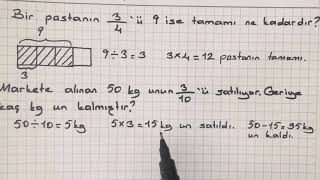 Bir pastanın 3/4 'ü 9 ise tamamı ne kadardır?
9
9÷3=3 3×4=12 pastanın tamamı.
3
Markete alınan 50 kg unun 3/10 'ü satılıyor. Geriye
kaç kg un kalmıştır?
50÷10=5kg 5×3=15kg un satıldı. 50-15=35kg
un kaldı.